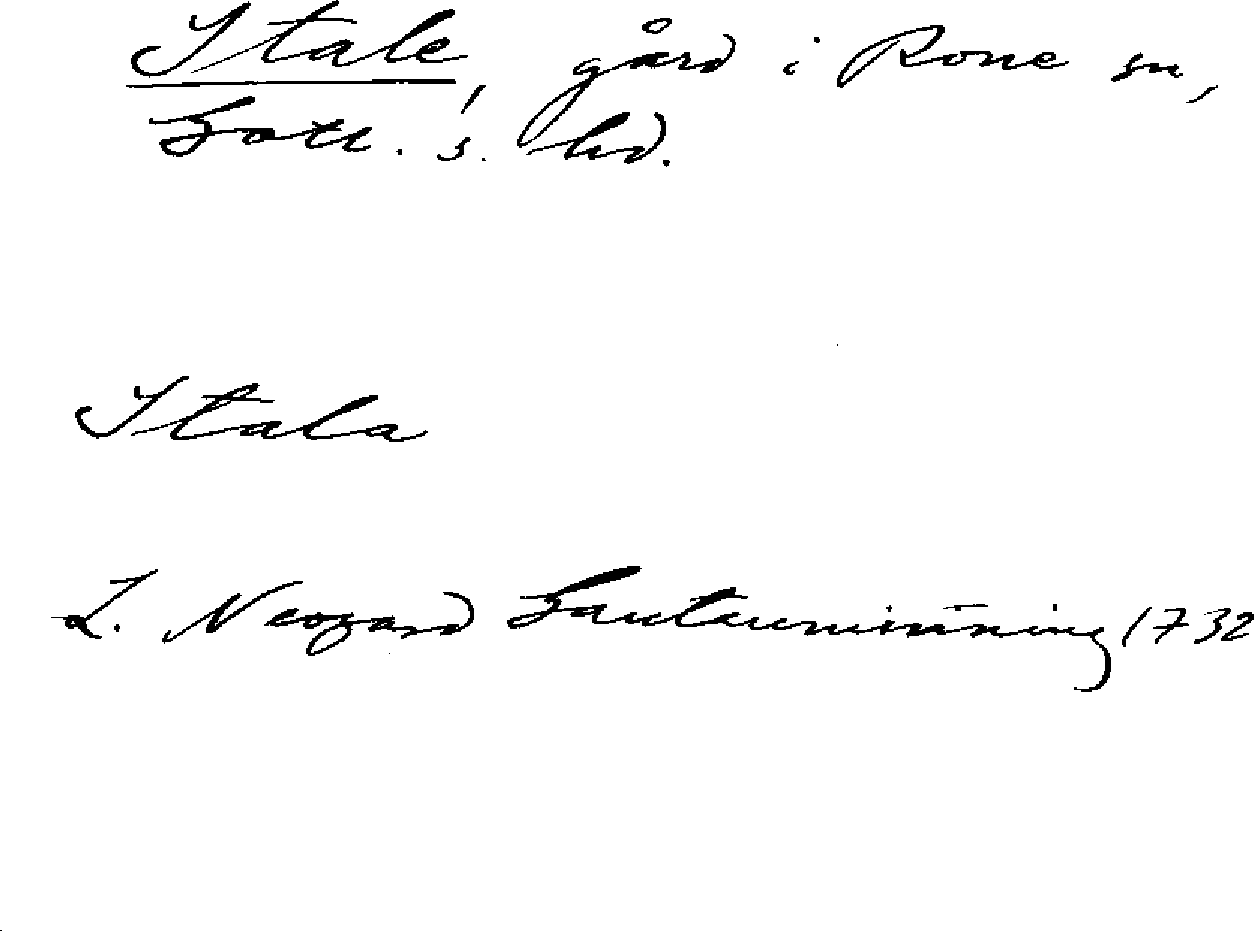 Stale, gård i Rone sn,
Gotl. s. hd.
Stala
L. Neogard Gautauminning 1732